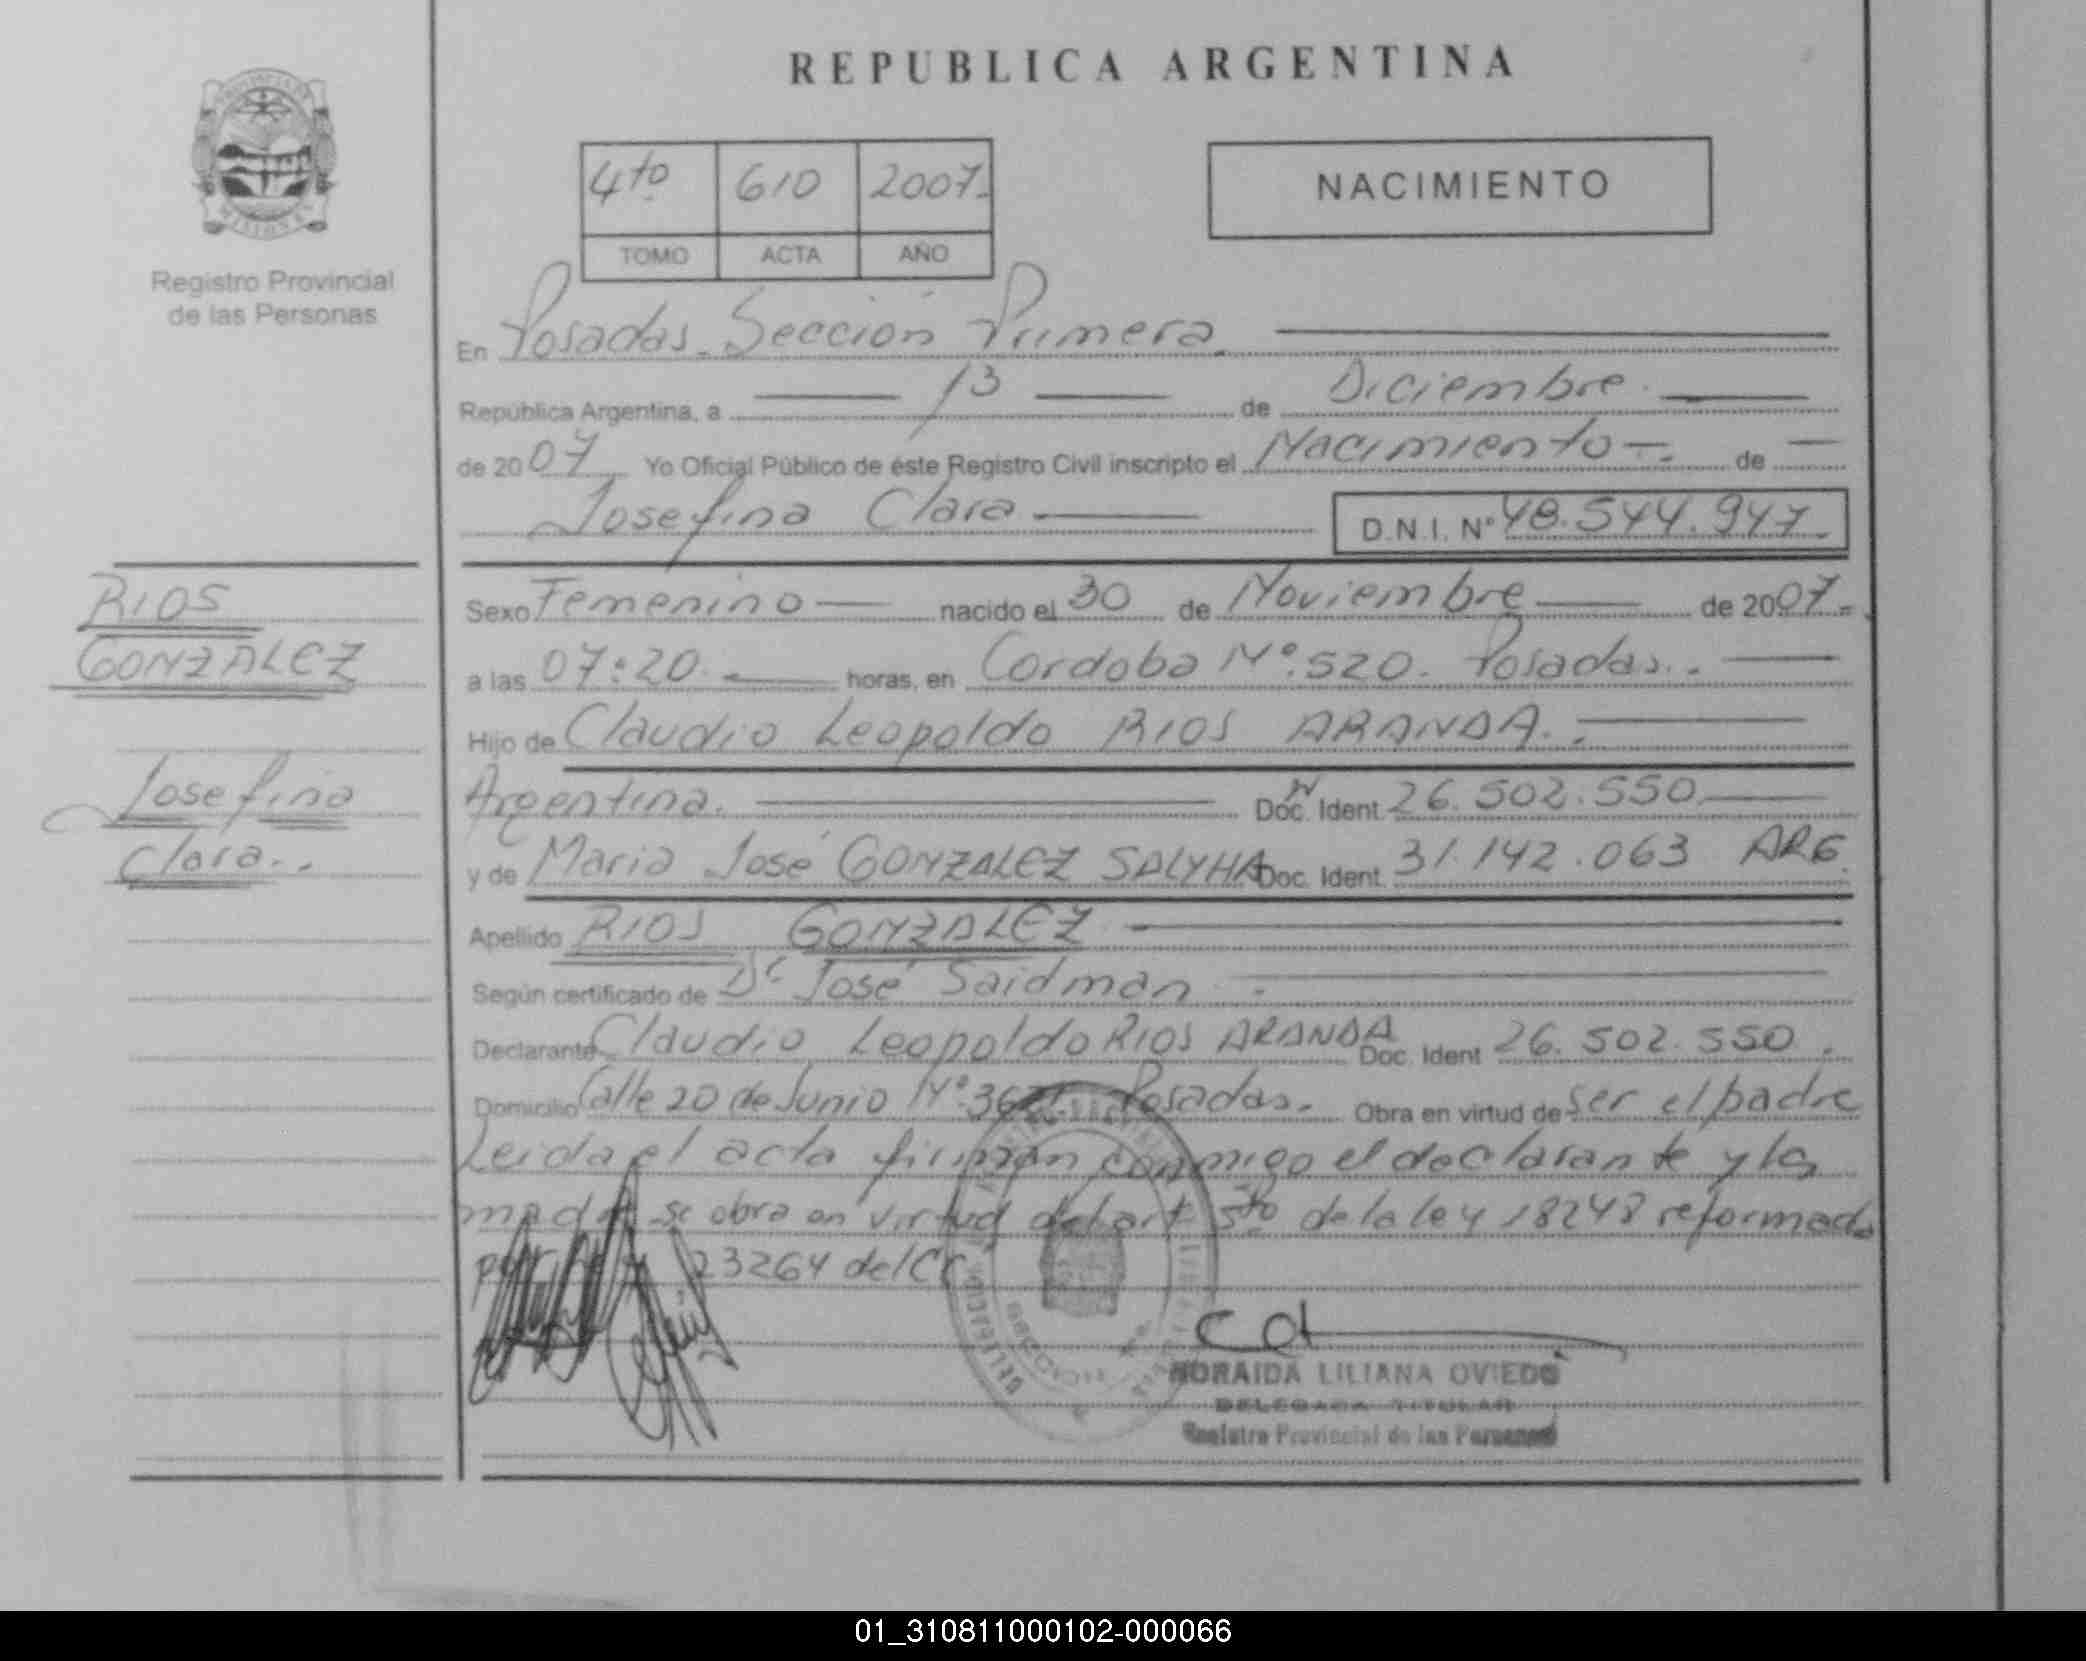 REPUBLICA ARGENTINA
PROVINCIA DE
MISIONES
Registro Provincial
de las Personas
4to 610 2007.
TOMO ACTA AÑO
NACIMIENTO
En Posadas. Sección Primera.
República Argentina, a 13 de Diciembre.
de 2007 Yo Oficial Público de éste Registro Civil inscripto el Nacimiento. de
Josefina Clara D.N.I. Nº 48.544.947.
RIOS
GONZALEZ
Josefina
Clara..
Sexo Femenino nacido el 30 de Noviembre de 2007.
a las 07:20. horas, en Cordoba Nº.520. Posadas..
Hijo de Claudio Leopoldo RIOS ARANDA..
Argentina. Doc. Ident. 26.502.550
y de Maria José GONZALEZ SALYHA Doc. Ident. 31.142.063 ARG.
Apellido RIOS GONZALEZ
Según certificado de Dr José Saidman.
Declarante Claudio Leopoldo RIOS ARANDA Doc. Ident 26.502.550.
Domicilio Calle 20 de Junio Nº Posadas. Obra en virtud de ser el padre
Leida el acta firman conmigo el declarante y la
madre se obra en virtud del art 5to de la ley 18248 reformada
por 23264 del CC
HORAIDA LILIANA OVIEDO
DELEGADA TITULAR
Registro Provincial de las Personas
01_310811000102-000066